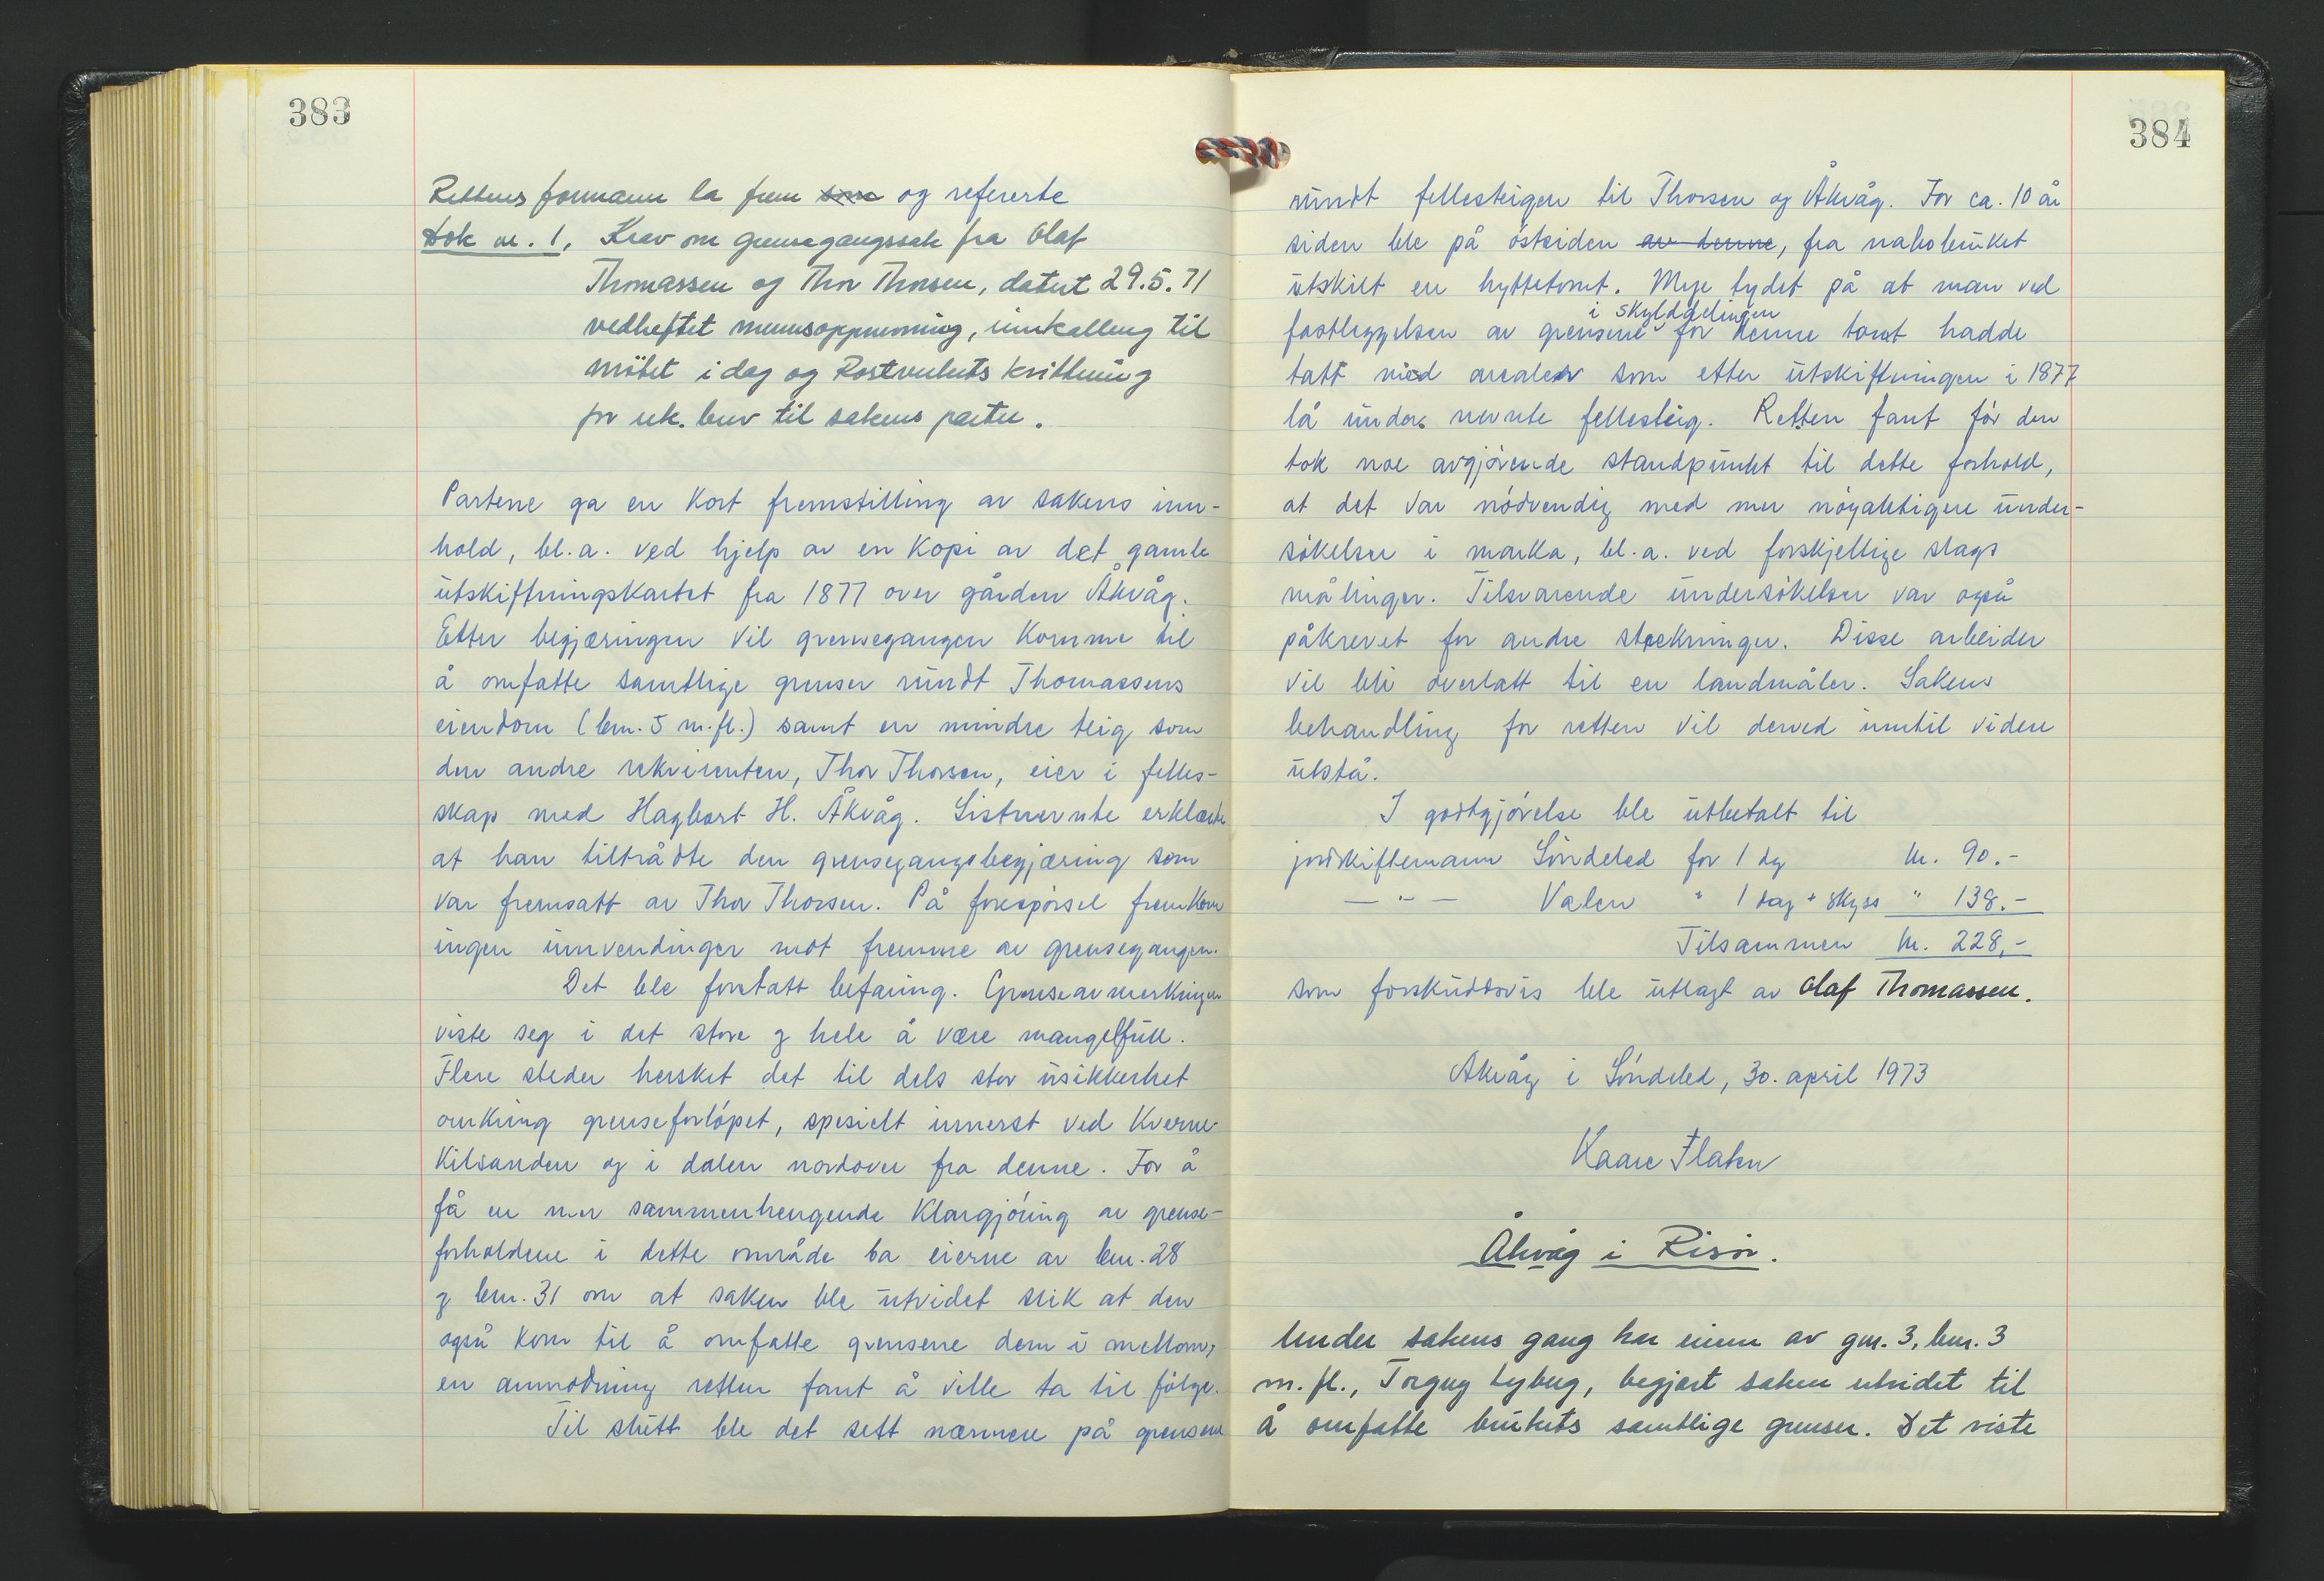 383
Rettens formann la frem som og refererte
Dok nr. 1, Krav om grensegangssak fra Olaf
Thomassen og Thor Thorsen, datert 29.5.71
vedheftet mannsoppnevning, innkalling til
møtet i dag og Postverkets kvittering
for rek. brev til sakens parter.
Partene ga en kort fremstilling av sakens inn-
hold, bl.a. ved hjelp av en kopi av det gamle
utskiftningskartet fra 1877 over gården Åkvåg.
Etter begjæringen vil grensegangen komme til
å omfatte samtlige grenser rundt Thomassens
eiendom (bnr. 5 m.fl.) samt en mindre teig som
den andre rekvirenten, Thor Thorsen, eier i felles-
skap med Hagbart H. Åkvåg. Sistnevnte erklærte
at han tiltrådte den grensegangsbegjæring som
var fremsatt av Thor Thorsen. På forespørsel fremkom
ingen innvendinger mot fremme av grensegangen.
Det ble foretatt befaring. Grenseavmerkingen
viste seg i det store og hele å være mangelfull.
Flere steder hersket det til dels stor usikkerhet
omkring grenseforløpet, spesielt innerst ved Kverne-
kilsanden og i dalen nordover fra denne. For å
få en mer sammenhengende klargjøring av grense-
forholdene i dette område ba eierne av bnr. 28
og bnr. 31 om at saken ble utvidet slik at den
også kom til å omfatte grensene dem i mellom,
en anmodning retten fant å ville ta til følge.
Til slutt ble det sett nærmere på grensene
384
rundt fellesteigen til Thorsen og Åkvåg. For ca. 10 år
siden ble på østsiden av denne, fra nabobruket
utskilt en hyttetomt. Mye tydet på at man ved
i skylddelingen
fastleggelsen av grensene for denne tomt hadde
tatt med arealer som etter utskiftningen i 1877
lå under nevnte fellesteig. Retten fant før den
tok noe avgjørende standpunkt til dette forhold,
at det var nødvendig med mer nøyaktigere under-
søkelser i marka, bl.a. ved forskjellige slags
målinger. Tilsvarende undersøkelser var også
påkrevet for andre strekninger. Disse arbeider
vil bli overlatt til en landmåler. Sakens
behandling for retten vil derved inntil videre
utstå.
I godtgjørelse ble utbetalt til
jordskiftemann Søndeled for 1 dg kr. 90.-
— " — Valen " 1 dag + skyss " 138.-
Tilsammen kr. 228,-
som forskuddsvis ble utlagt av Olaf Thomassen.
Akvåg i Søndeled, 30. april 1973
Kaare Flaten
Åkvåg i Risør.
Under sakens gang har eieren av gnr. 3, bnr. 3
m. fl., Torguy Lyberg, begjært saken utvidet til
å omfatte brukets samtlige grenser. Det viste